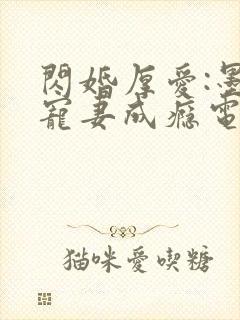 閃婚厚愛:墨
寵妻成癮電
猫咪愛喫糖